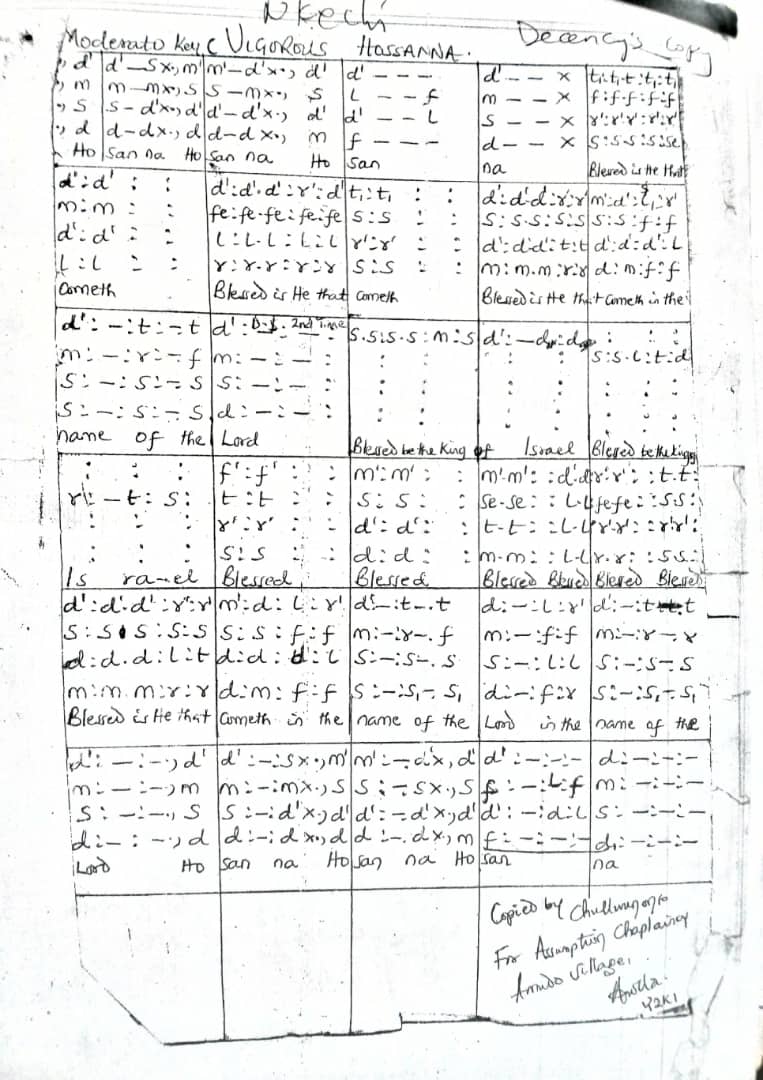 Nkechi
Moderato Key C VIGOROUS HOSSANNA. Decency's copy
, d' | d' – s x ., m' | m' – d' x ., d' | d' – – – | d' – – x | t₁:t₁.t₁:t₁:t₁
, m | m – m x ., s | s – m x ., s | l – – f | m – – x | f:f.f:f:f
., s | s – d' x ., d' | d' – d' x ., d' | d' – – l | s – – x | r':r'.r':r':r'
., d | d – d x ., d | d – d x ., m | f – – – | d – – x | s:s.s:s:se
Ho | San na Ho | san na Ho | san | na | Blessed is He that
d':d' : : | d':d'.d':r':d' | t₁:t₁ : : | d':d'.d:r':r' | m':d':t₁:r'
m:m : : | fe:fe.fe:fe:fe | s:s : : | s:s.s:s:s | s:s:f:f
d':d' : : | l:l.l:l:l | r':r' : : | d':d'.d':t:t | d':d':d':l
l:l : : | r:r.r:r:r | s:s : : | m:m.m:r:r | d:m:f:f
Cometh | Blessed is He that | cometh | Blessed is He that | Cometh in the
d':–:t:–t | d': D.S. 2nd Time | s.s:s.s:m:s | d':–d:d | : : :
m:–:r:–f | m:–:–: | : : : | : : : | s:s.l:t:d
s:–:s:–s | s:–:–: | : : : | : : : | : : :
s:–:s:–s | d:–:–: | : : : | : : : | : : :
name of the | Lord | Blessed be the King of | Israel | Blessed be the King of
: : : | f':f' : : | m':m' : : | m'.m': :d'.d' | r'.r': :t.t:
r':–t:s: | t:t : : | s:s : : | se.se: :l.l | fe.fe: :s.s:
: : : | r':r' : : | d':d' : : | t.t: :l.l | r'.r': :r'.r':
: : : | s:s : : | d:d : : | m.m: :l.l | r.r: :s.s:
Is ra-el | Blessed | Blessed | Blessed Blessed | Blessed Blessed
d':d'.d':r':r' | m':d:l:r' | d':–:t–.t | d:–:l:r' | d':–:t–t
s:s.s:s:s | s:s:f:f | m:–:r–.f | m:–:f:f | m:–:r–x
d:d.d:l:t | d:d:d':l | s:–:s–.s | s:–:l:l | s:–:s–s
m:m.m:r:r | d:m:f:f | s:–:s₁–s₁ | d:–:f:r | s:–:s₁–s₁
Blessed is He that | Cometh in the | name of the | Lord in the | name of the
d':–:–., d' | d':–:s x ., m' | m':–d x , d' | d':–:–:– | d:–:–:–
m:–:–., m | m:–:m x ., s | s:–s x ., s | f:–:l:f | m:–:–:–
s:–:–., s | s:–:d' x ., d' | d':–d' x , d' | d':–:d:l | s:–:–:–
d:–:–., d | d:–:d x ., d | d:–.d x ., m | f:–:–:– | d₁:–:–:–
Lord Ho | san na Ho | san na Ho | san | na
Copied by
For Assumption Chaplaincy
Village,
Y2K1